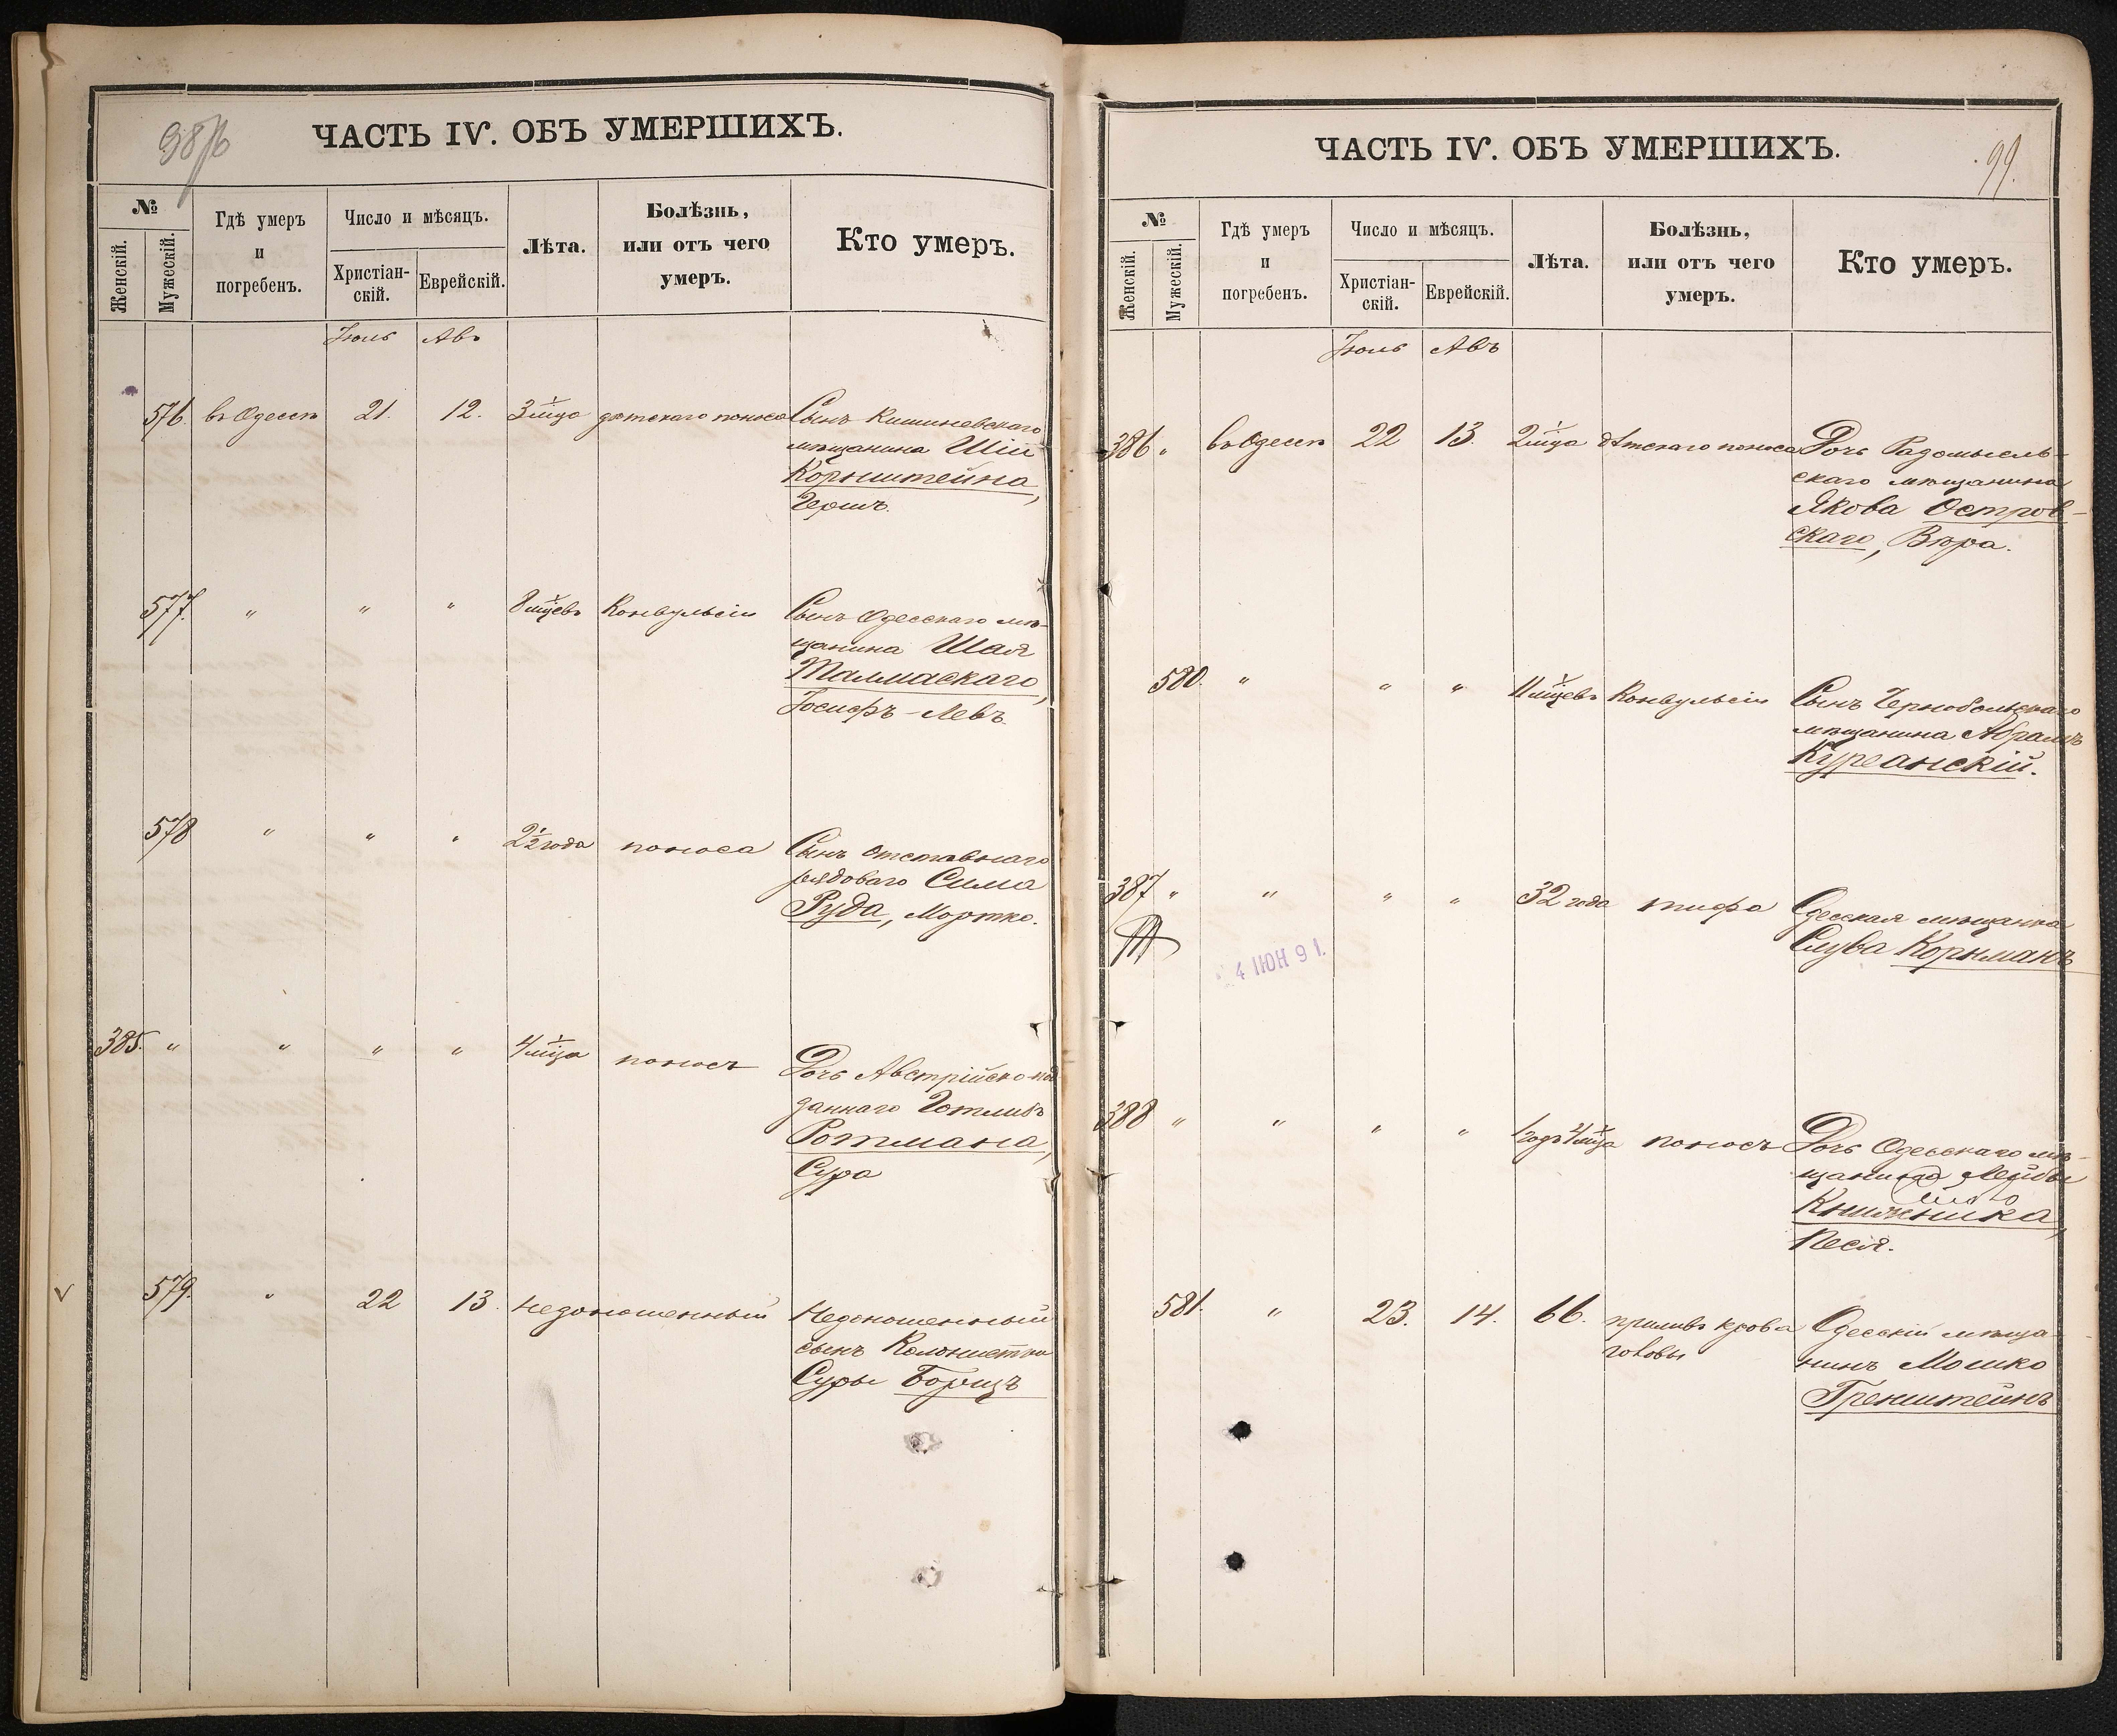 ЧАСТЬ IV. ОБЪ УМЕРШИХЪ.
№
Женскій.
Мужескій.
Гдѣ умеръ
и
погребенъ.
Число и мѣсяцъ.
Христіан-
скій.
Еврейскій.
Лѣта.
Болѣзнь,
или отъ чего
умеръ.
Кто умеръ.
Іюль Авъ
576. въ Одессѣ 21. 12. 3 м-ца дѣтскаго поноса Сынъ Кишиневскаго
мѣщанина Шіи
Корнштейна,
Гершъ.
577. " " " 8 м-цевъ Конвульсіи Сынъ Одесскаго мѣ-
щанина Шая
Талмаскаго,
Іосифъ-Левъ.
578 " " " 2½ года поноса Сынъ отставнаго
рядоваго Сима
Руда, Мортко.
385. " " " " 4 м-ца поносъ Дочь Австрійско-под
даннаго Готлибъ
Ротмана,
Сура
579. " 22 13. недоношенный Недоношенный
сынъ Колонистки
Суры Борщъ
ЧАСТЬ IV. ОБЪ УМЕРШИХЪ.
99.
№
Женскій.
Мужескій.
Гдѣ умеръ
и
погребенъ.
Число и мѣсяцъ.
Христіан-
скій.
Еврейскій.
Лѣта.
Болѣзнь,
или отъ чего
умеръ.
Кто умеръ.
Іюль Авъ
386 " въ Одессѣ 22 13. 2 м-ца дѣтскаго поноса Дочь Радомысль-
скаго мѣщанина
Якова Остров-
скаго, Вѣра.
580. " " " 11 м-цевъ Конвульсіи Сынъ Чернобольскаго
мѣщанина Абрамъ
Курганскій.
387 " " " " 32 года тифа Одесская мѣщанка
Слува Корнманъ
4 ІЮН 91.
388 " " " " 1 годъ 4 м-ца поносъ Дочь Одесскаго мѣ-
щанина Лейбы
Книжника,
Песя.
581. " 23. 14. 66. приливъ крови Одесскій мѣща-
головы нинъ Мошко
Гренштейнъ